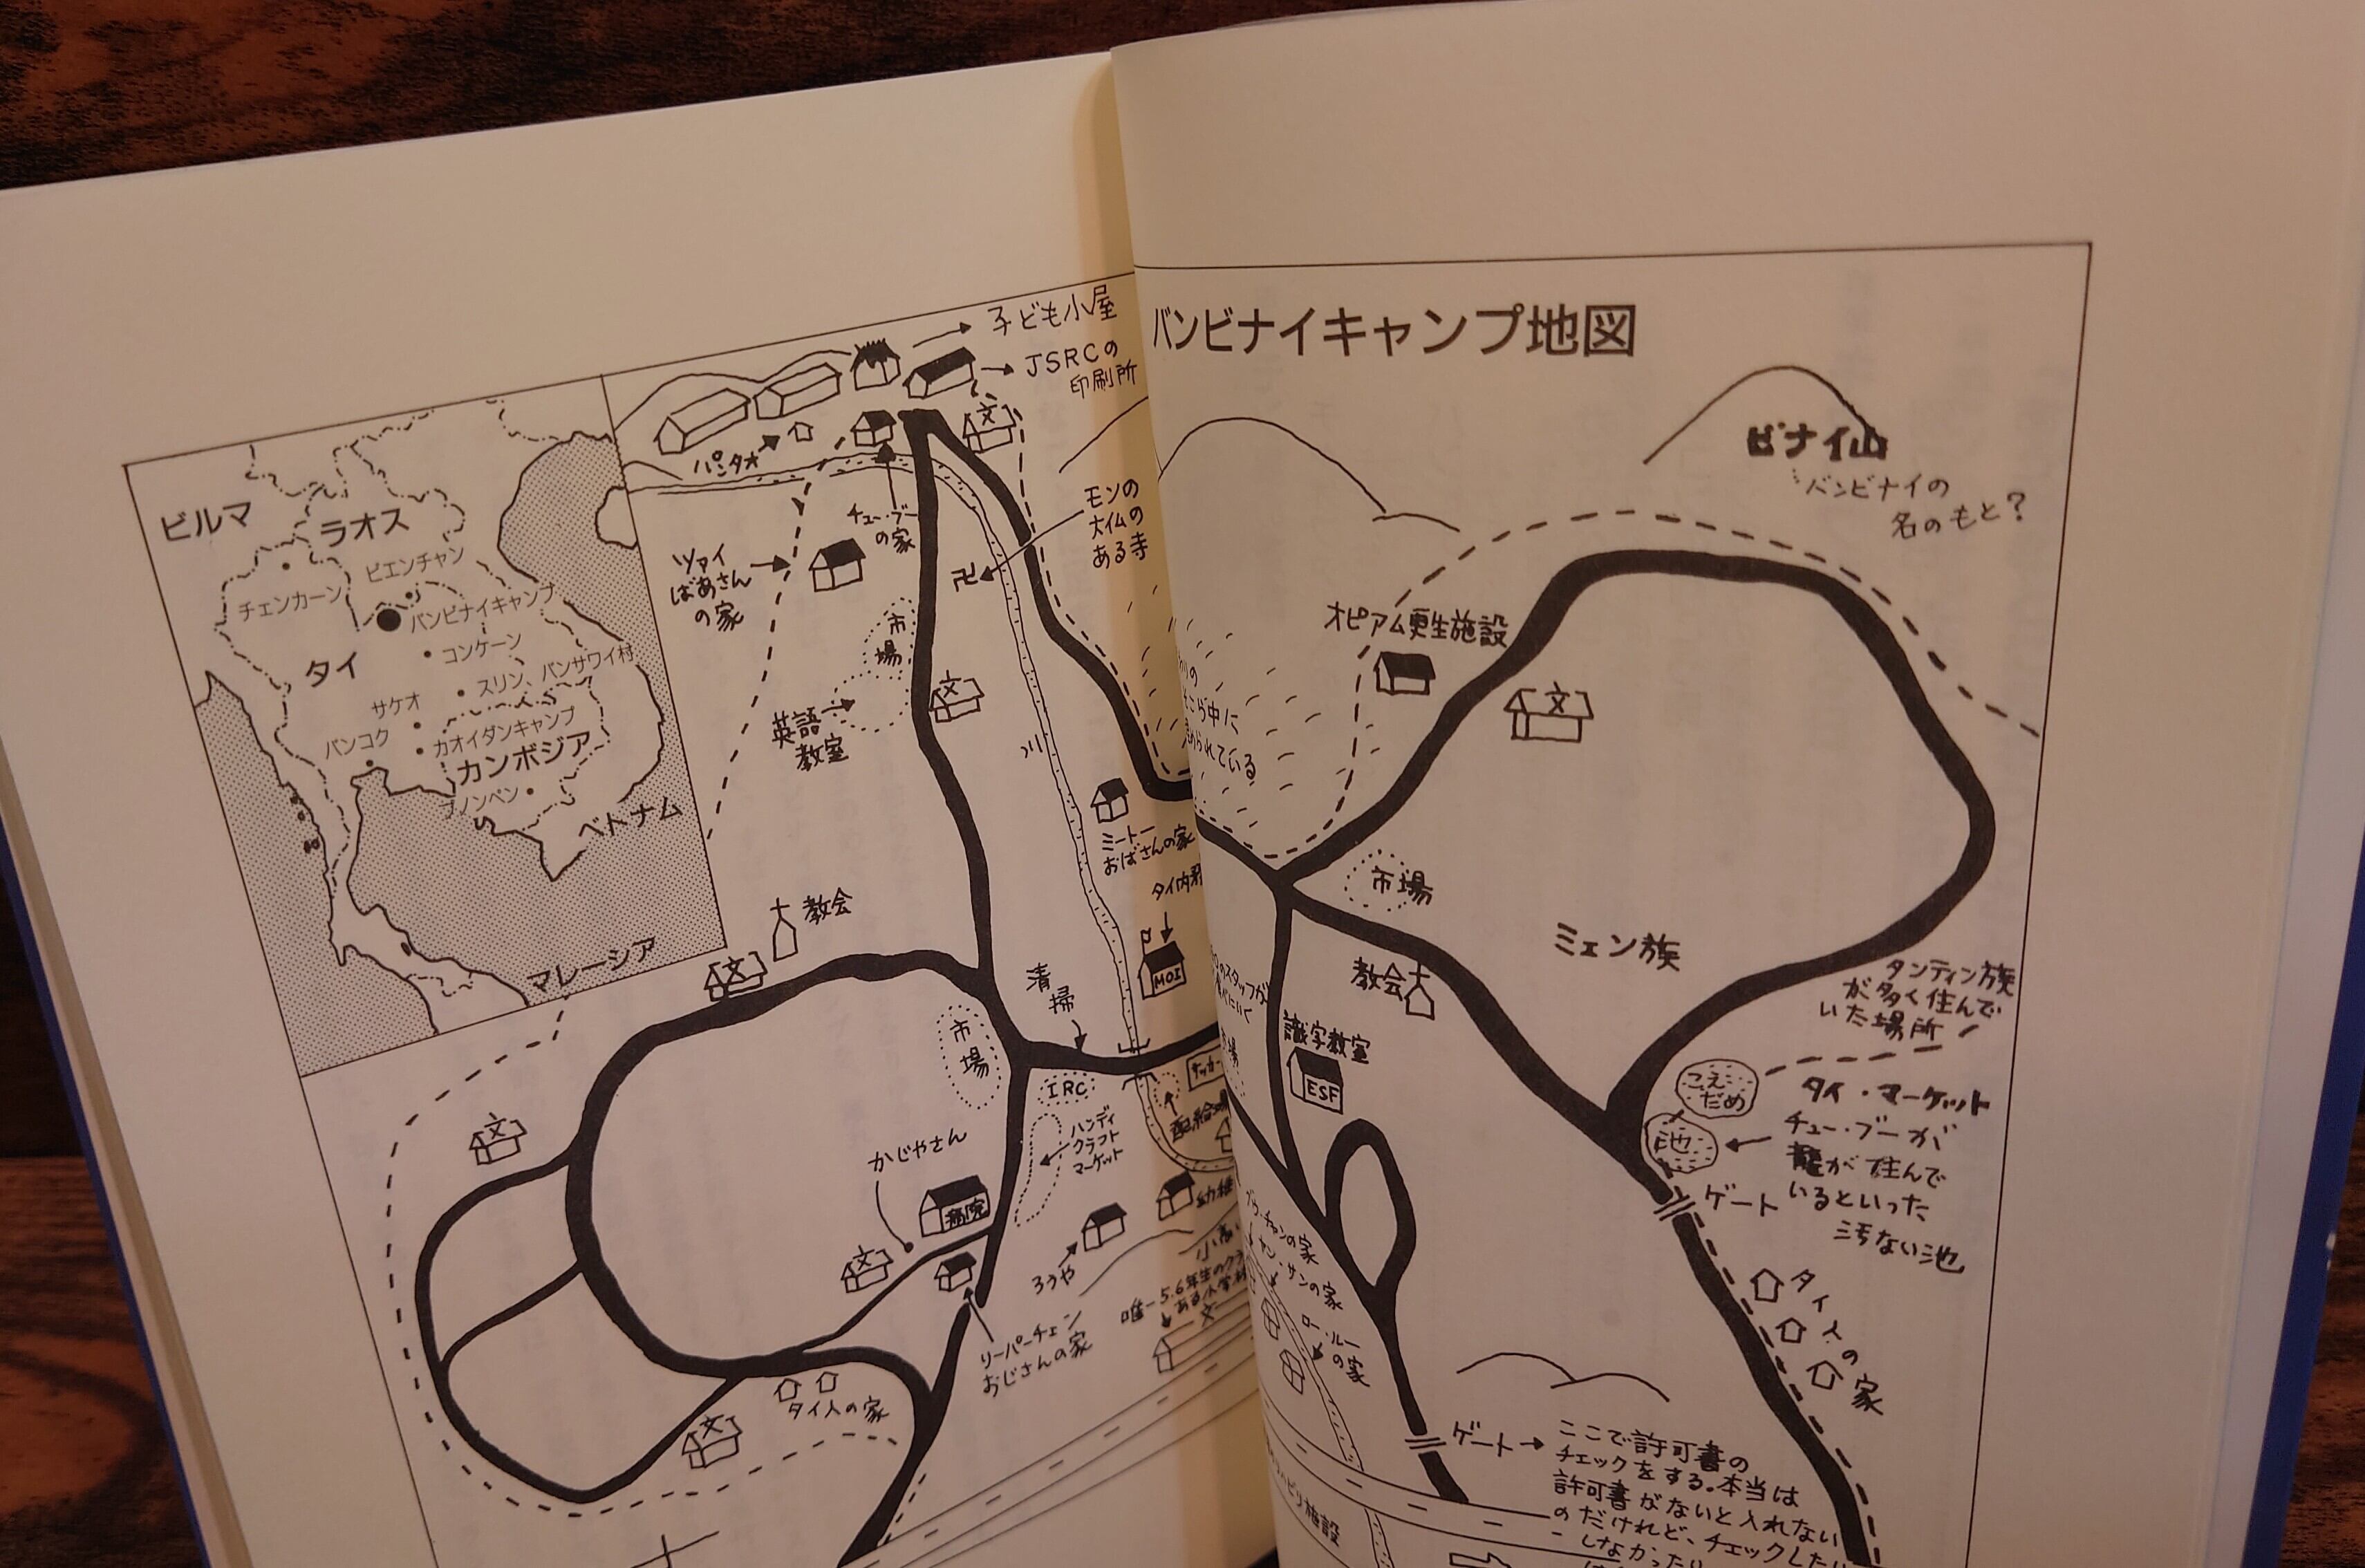 バンビナイキャンプ地図
ビルマ
ラオス
ビエンチャン
チェンカーン
バンビナイキャンプ
コンケーン
タイ
スリン、バンサワイ村
サケオ
バンコク
カオイダンキャンプ
カンボジア
プノンペン
ベトナム
マレーシア
子ども小屋
JSRCの
印刷所
文
パンタオ
チュ・ブー
の家
モンの
ある寺
卍
ツァイ
ばあさん
の家
市
場
英語
教室
文
ミートー
おばさんの家
教会
文
MOI
清
掃
市
場
IRC
ハンディ
クラフト
マーケット
文
かじやさん
病院
文
ろうや
唯一5.6年生の
文
リーパーチェン
おじさんの家
タイ人の家
文
ビナイ山
バンビナイの
名のもと?
オピアム更生施設
文
市場
ミェン族
教会
識字教室
ESF
タンティン族
が多く住んで
いた場所
こえ
だめ
池
タイ・マーケット
チュー・ブーが
龍が住んで
いるといった
汚ない池
ゲート
タイ人の家
サンの家
ロー・ルー
の家
ゲート
ここで許可書の
チェックをする。本当は
許可書がないと入れない
のだけれど、チェックしたり
しなかったり